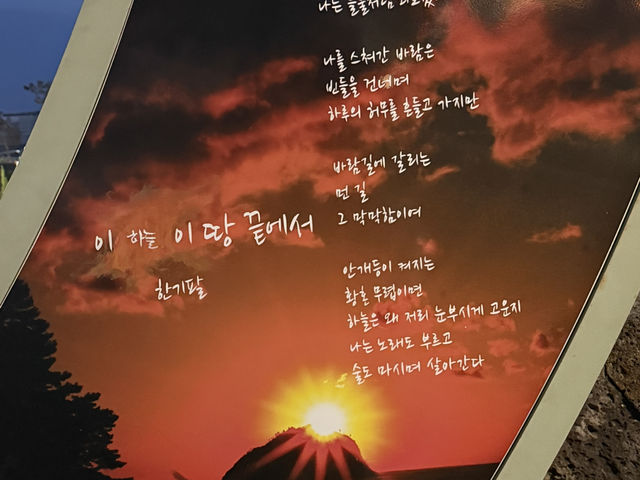 이 하늘 이 땅 끝에서
한기팔
나는
나를 스쳐간 바람은
빈들을 건너며
하루의 허무를 흔들고 가지만
바람길에 갈리는
먼 길
그 막막함이여
안개등이 켜지는
황혼 무렵이면
하늘은 왜 저리 눈부시게 고운지
나는 노래도 부르고
술도 마시며 살아간다